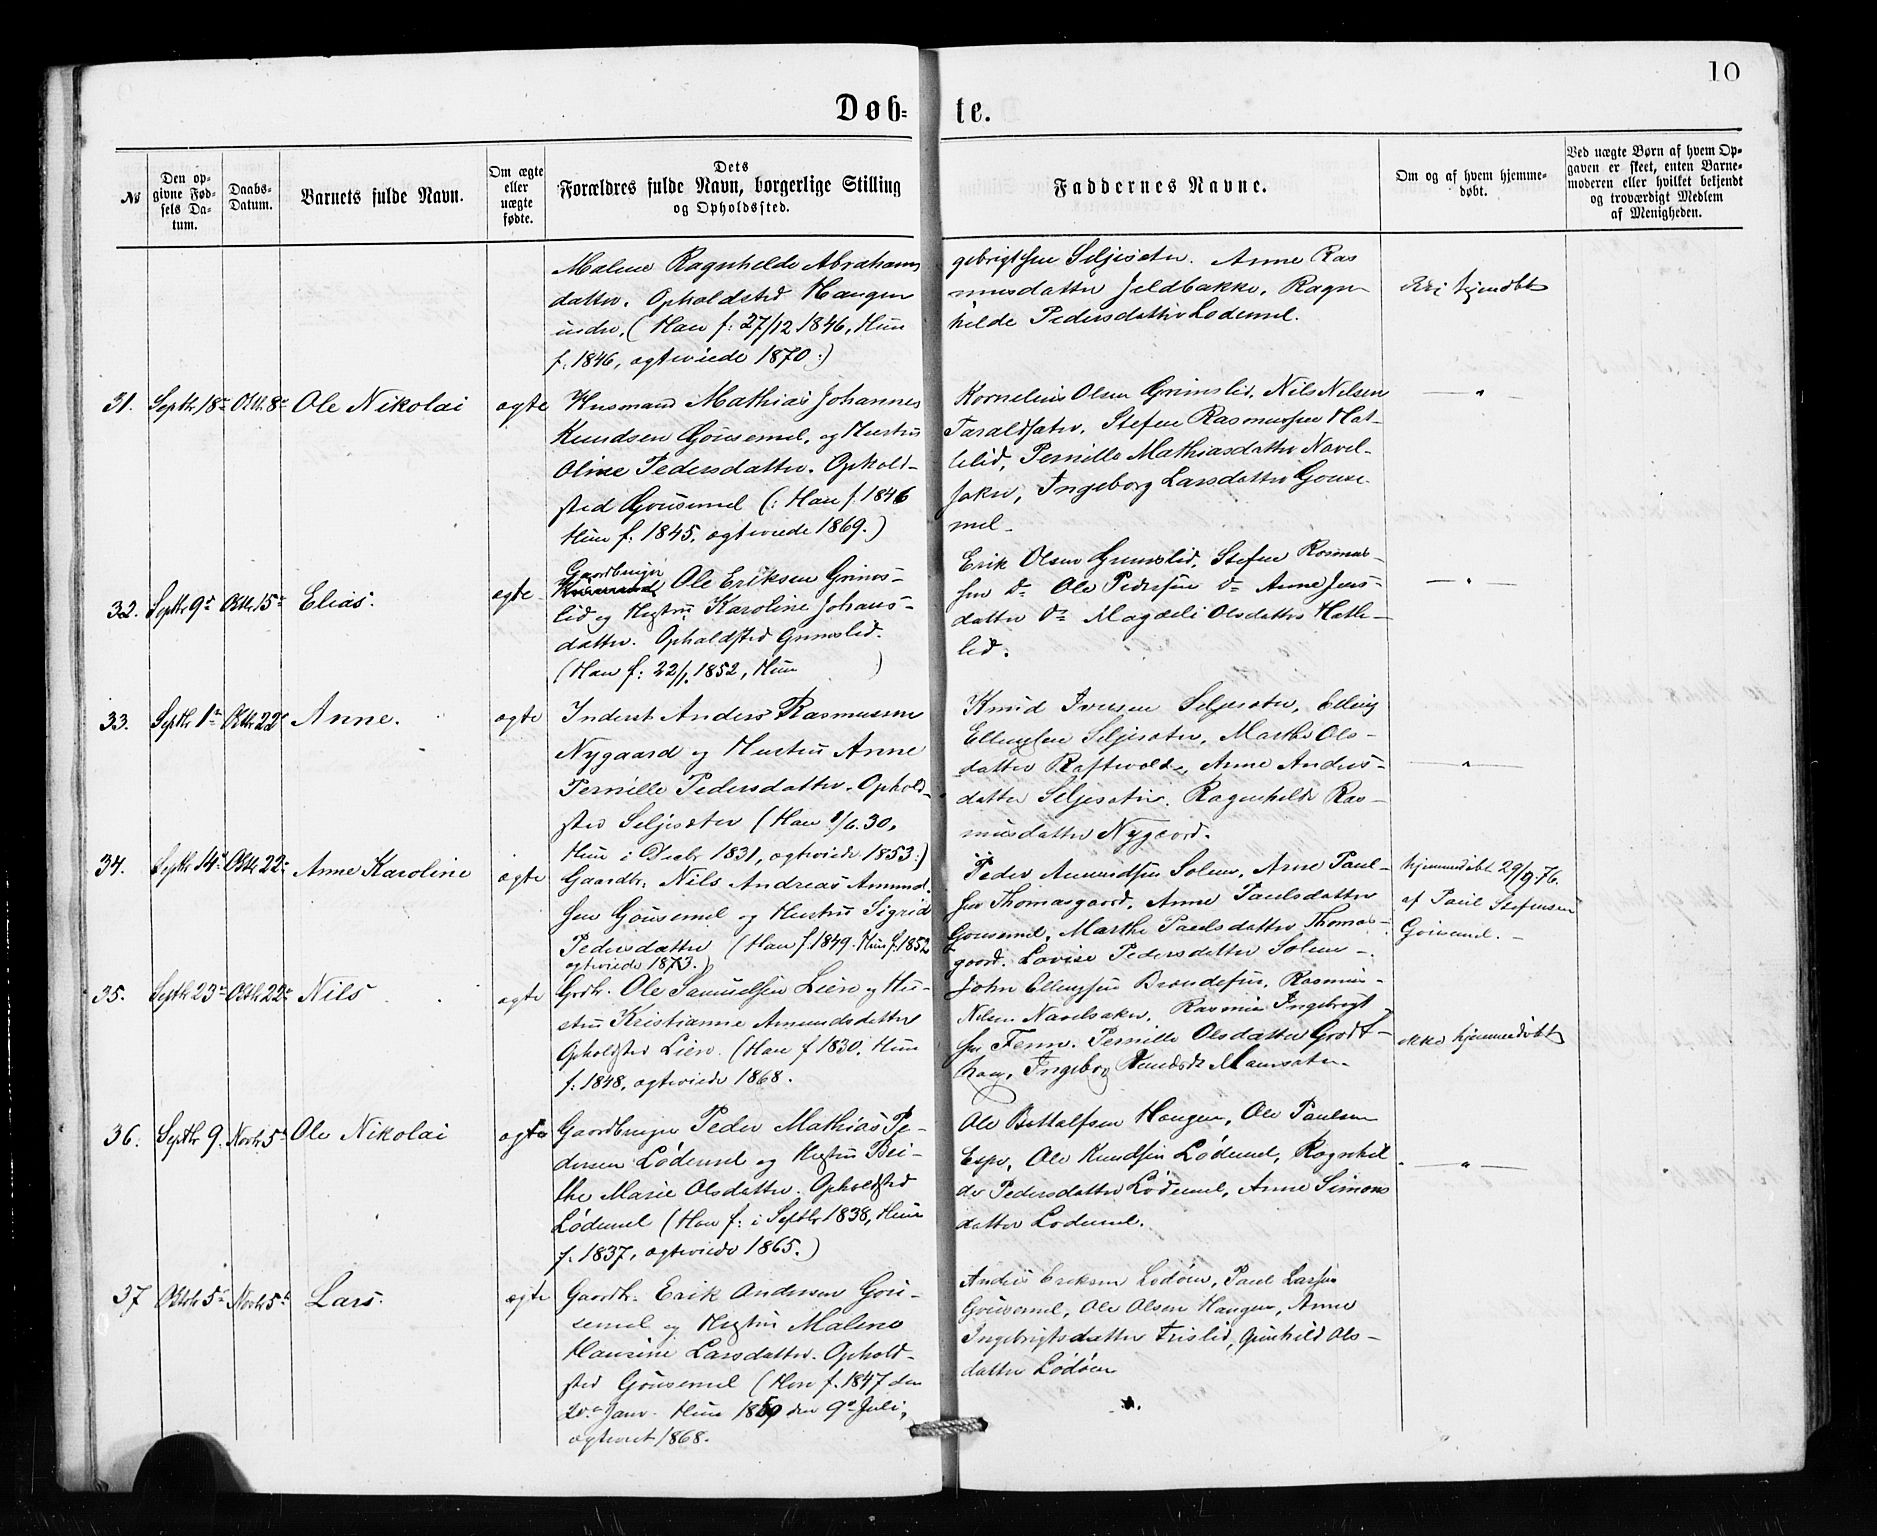 10
Døb- te.
№
Den opgivne Fødsels Datum.
Daabs-Datum.
Barnets fulde Navn.
Om ægte eller uægte fødte.
Dets Forældres fulde Navn, borgerlige Stilling og Opholdssted.
Faddernes Navne.
Om og af hvem hjemmedøbt.
Ved uægte Børn af hvem Opgaven er skeet, enten Barnemoderen eller hvilket bekjendt og troværdigt Medlem af Menigheden.
Malene Ragnhilde Abrahams
datter. Opholdsted Haugen
indre, (Han f: 27/12 1846, Hun
f. 1846, ægteviede 1870:)
gebrigtsen Seljesæter. Anne Ras
musdatter Jeldbakke, Ragn-
hilde Pedersdatter Lødemel.
31. Septbr 18de Oktbr 8de Ole Nikolai ægte
Husmand Mathias Johannes
Knudsen Gousemel, og Hustru
Oline Pedersdatter. Ophold-
sted Gousemel (: Han f. 1846
Hun f. 1845, ægteviede 1869.)
Kornelius Olsen Grimslid, Nils Nilsen
Taraldsæter, Stefen Rasmussen Hat-
lelid, Pernille Mathiasdatter Navel-
saker, Ingeborg Larsdatter Gouse-
mel.
— " —
32. Septbr 9de Oktbr 15de Elias. ægte
Gaardbruger
Husmand Ole Eriksen Grims-
lid og Hustru Karoline Johans-
datter. Opholdsted Grimslid.
(Han f: 22/1 1852, Hun )
Erik Olsen Grimslid, Stefen Rasmus-
sen do Ole Pedersen do Anne Jens-
datter do Magdeli Olsdatter Hatle-
lid.
— " —
33. Septbr 1ste Oktbr 22de Anne. ægte
Inderst Anders Rasmussen
Nygaard og Hustru Anne
Pernille Pedersdatter. Ophold-
sted Seljesæter (Han /6. 30,
Hun i Decbr 1831, ægteviede 1853:)
Knud Iversen Seljesæter, Elling
Ellingsen Seljesæter, Marthe Ols-
datter Raftevolde, Anne Anders-
datter Seljesæter. Ragnhilde Ras-
musdatter Nygaard.
— " —
34. Septbr 14de Oktbr 22de Anne Karoline ægte
Gaardbr. Nils Andreas Amund-
sen Gousemel og Hustru Sigrid
Pedersdatter (Han f. 1849. Hun f. 1852
ægteviede 1873.)
Peder Amundsen Solem, Arne Paul-
sen Thomasgaard, Anne Paulsdatter
Gousemel, Marthe Paulsdatter Thomas-
gaard. Lovise Pedersdatter Solem -.
hjemmedøbt 29/9. 76.
af Paul Stefensen
Gousemel. -
35. Septbr 23de Oktbr 22de Nils ægte
Grdbr. Ole Samuelsen Lien og Hu-
stru Kristianne Amundsdatter
Opholdsted Lien. (Han f 1830. Hun
f. 1848, ægteviede 1868.
John Ellingsen Brendefur, Rasmus
Nilsen Navelsaker, Rasmus Ingebrigt
sen Ferm. Pernille Olsdatter Grodt-
haug, Ingeborg
ikke hjemmedøbt
36. Septbr 9. Novbr 5te Ole Nikolai ægte
Gaardbruger Peder Mathias Pe-
dersen Lødemel og Hustru Bri-
the Marie Olsdatter. Opholdsted
Lødemel (Han f: i Septbr 1838, Hun
f. 1837, ægteviede 1865.)
Ole Bottolfsen Haugen, Ole Paulsen
Espe, Ole Knudsen Lødemel, Ragnhil
de Pedersdatter Lødemel, Anne Simons
datter Lødemel.
— " —
37 Oktbr 5te Novbr 5te Lars. ægte
Gaardbr. Erik Andersen Gou-
semel og Hustru Malene
Hansine Larsdatter. Ophold-
sted Gousemel (Han f. 1847 den
20de Janr. Hun 1850 den 9de Juli,
ægteviet 1868.
Anders Eriksen Lødøen, Paul Larsen
Gousemel, Ole Olsen Haugen, Anne
Ingebrigtsdatter Frislid, Gunhild Ols-
datter Lødøen